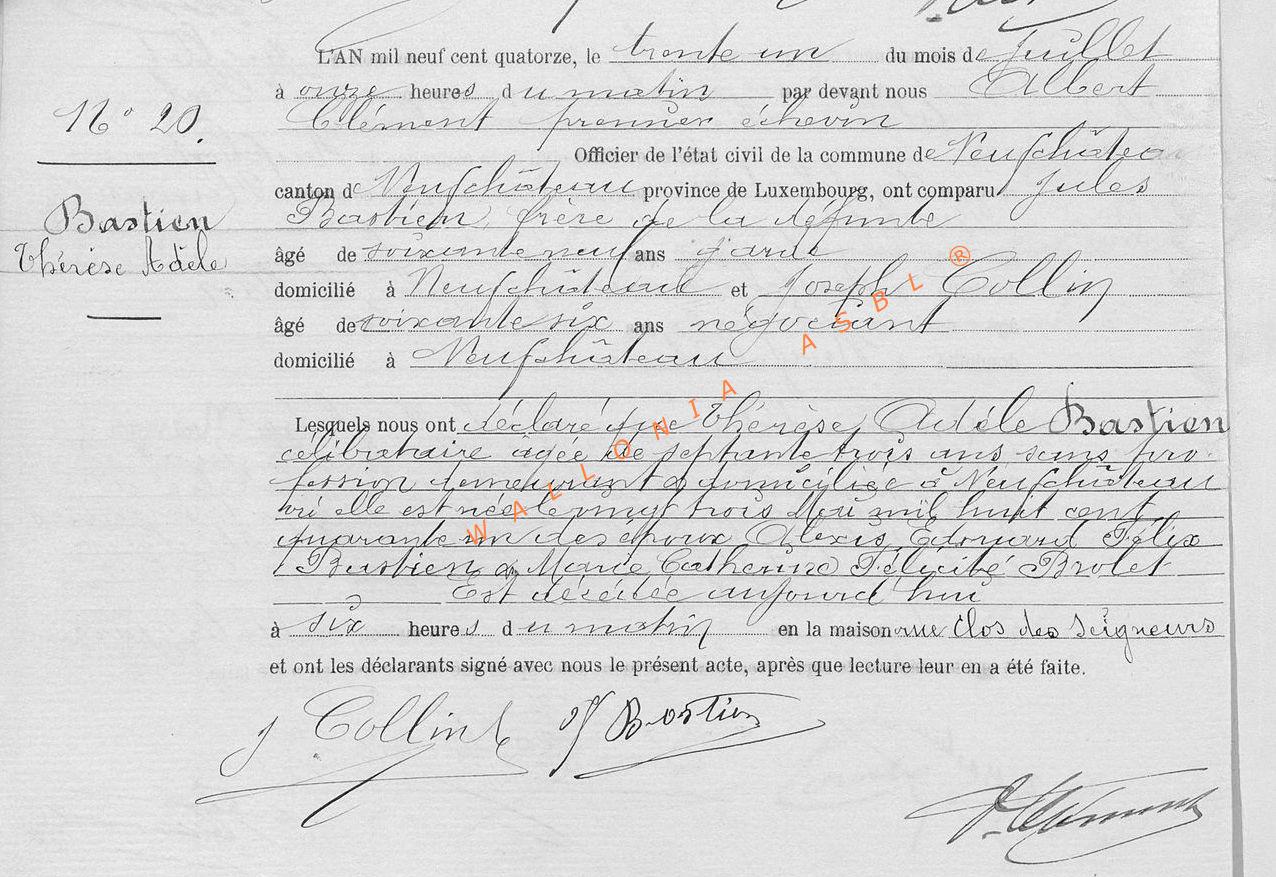 L'AN mil neuf cent quatorze, le trente un du mois de Juillet
à onze heures du matin par devant nous Albert
Clément premier échevin
Officier de l'état civil de la commune de Neufchâteau
canton de Neufchâteau province de Luxembourg, ont comparu Jules
Bastien, frère de la défunte
âgé de soixante neuf ans garde
domicilié à Neufchâteau et Joseph Collin
âgé de soixante six ans négociant
domicilié à Neufchâteau
N° 20.
Bastien
Thérèse Adèle
Lesquels nous ont déclaré que Thérèse, Adèle Bastien
célibataire âgée de septante trois ans sans pro-
fession demeurant & domiciliée à Neufchâteau
où elle est née le vingt trois Mai mil huit cent
quarante un des époux Alexis, Edouard Félix
Bastien & Marie Catherine Félicité Brolet
Est décédée aujourd'hui
à six heures du matin en la maison rue Clos des Seigneurs
et ont les déclarants signé avec nous le présent acte, après que lecture leur en a été faite.
J Collin Bastien
Clément
WALLONIA ASBL ®